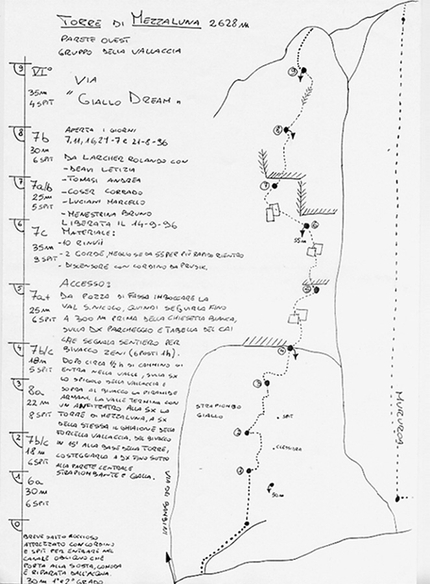 TORRE DI MEZZALUNA 2628 m
PARETE OVEST
GRUPPO DELLA VALLACCIA
VIA
"GIALLO DREAM"
APERTA I GIORNI
DA LARCHER ROLANDO CON
- DEAVI LETIZIA
- TOMASI ANDREA
- COSER CORRADO
- LUCIANI MARCELLO
- MENESTRINA BRUNO
LIBERATA IL 14-9-96
MATERIALE:
- 10 RINVII
- 2 CORDE, MEGLIO SE DA 55 PER PIÙ RAPIDO RIENTRO
- DISCENSORE CON CORDINO DA PRUSIK.
ACCESSO:
DA POZZA DI FASSA IMBOCCARE LA
VAL S. NICOLO', QUINDI SEGUIRLA FINO
A 300 m PRIMA DELLA CHIESETTA BIANCA,
SULLA DX PARCHEGGIO E TABELLA DEL CAI
CHE SEGNALA SENTIERO PER
BIVACCO ZENI (6 POSTI 1h).
DOPO CIRCA ½ h DI CAMMINO SI
ENTRA NELLA VALLE, SULLA SX
LO SPIGOLO DELLA VALLACCIA E
SOPRA AL BIVACCO LA PIRAMIDE
ARMANI. LA VALLE TERMINA CON
UN ANFITEATRO ALLA SX LA
TORRE DI MEZZALUNA, A SX
DELLA STESSA IL
FORCELLA VALLACCIA, DAL BIVACCO
IN 15' ALLA BASE DELLA TORRE,
COSTEGGIARLO A DX FINO SOTTO
ALLA PARETE CENTRALE
STRAPIOMBANTE E GIALLA.
9
VI°
35 m
4 SPIT
8
7b
30 m
6 SPIT
7
7a/b
25 m
5 SPIT
6
7c
35 m
9 SPIT
5
7a+
25 m
6 SPIT
4
7b/c
18 m
5 SPIT
3
8a
22 m
8 SPIT
2
7b/c
18 m
6 SPIT
1
6a
30 m
6 SPIT
0
BREVE SALTO ROCCIOSO
ATTREZZATO CON CORDINO
E SPIT PER ENTRARE NEL
CANALE OBLIQUO CHE
PORTA ALLA SOSTA, COMODA
E RIPARATA DALL'ACQUA.
30 m 1° e 2° GRADO
9
8
7
6
55 m
5
4
3
2
1
STRAPIOMBO
GIALLO
SPIT
CLESSIDRA
50 m